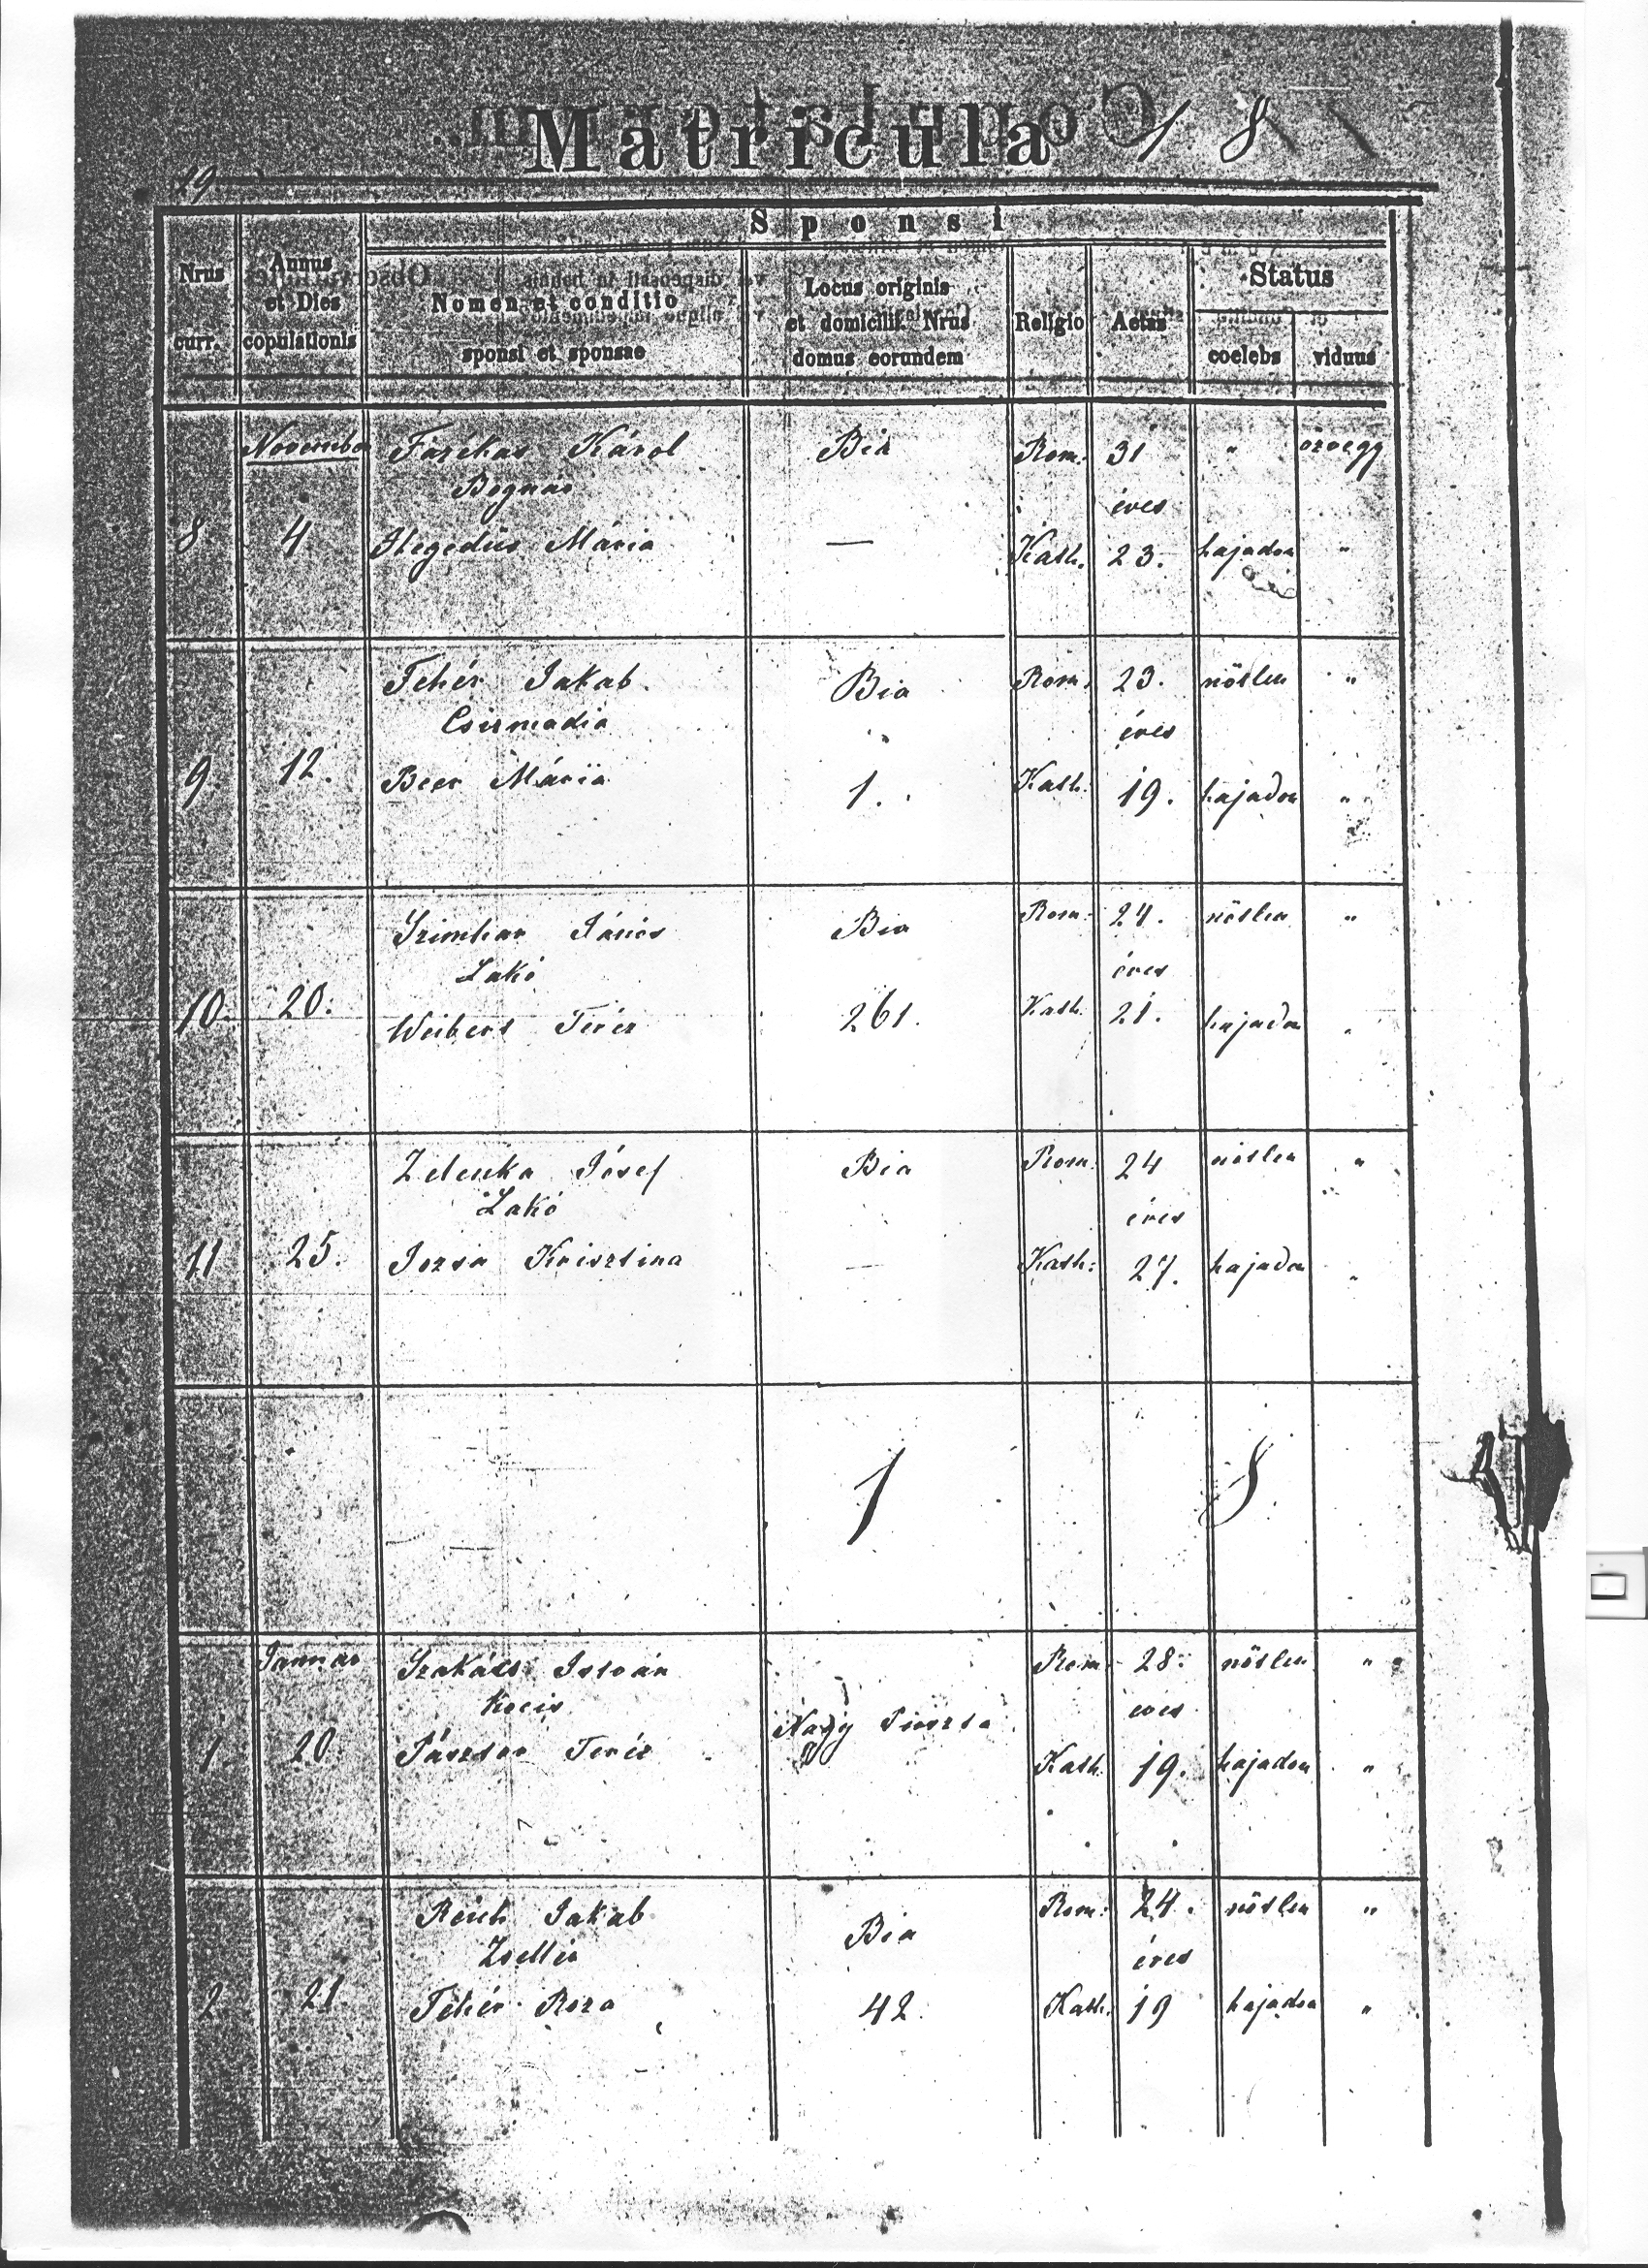 Matricula 1 8
19
Sponsi
Nrus curr.
Annus et Dies copulationis
Nomen et conditio sponsi et sponsae
Locus originis et domicilii. Nrus domus eorundem
Religio
Aetas
Status
coelebs
viduus
November Farékas Károl Bia Rom. 31 " özvegy
Bognár éves
8 4 Hegedüs Mária — Kath. 23. hajadon "
Fehér Jakab Bia Rom. 23. nőtlen "
Csizmadia " éves
9. 12. Beer Mária 1. Kath. 19. hajadon "
János Bia Rom. 24. nőtlen "
Lakó éves
10. 20. Teréz 261. Kath. 21. hajadon "
Zelenka Jósef Bia Rom. 24 nőtlen "
Lakó éves
11 25. Jozsa Krisztina — Kath: 27. hajadon "
1 8
Január Szakács István Rom. 28. nőtlen "
Kocsis Nagy éves
1. 20 Pásztor Teréz Kath. 19. hajadon "
Reich Jakab Bia Rom: 24. nőtlen "
Zsellér éves
2 21 Fehér Roza 42. Kath. 19 hajadon "